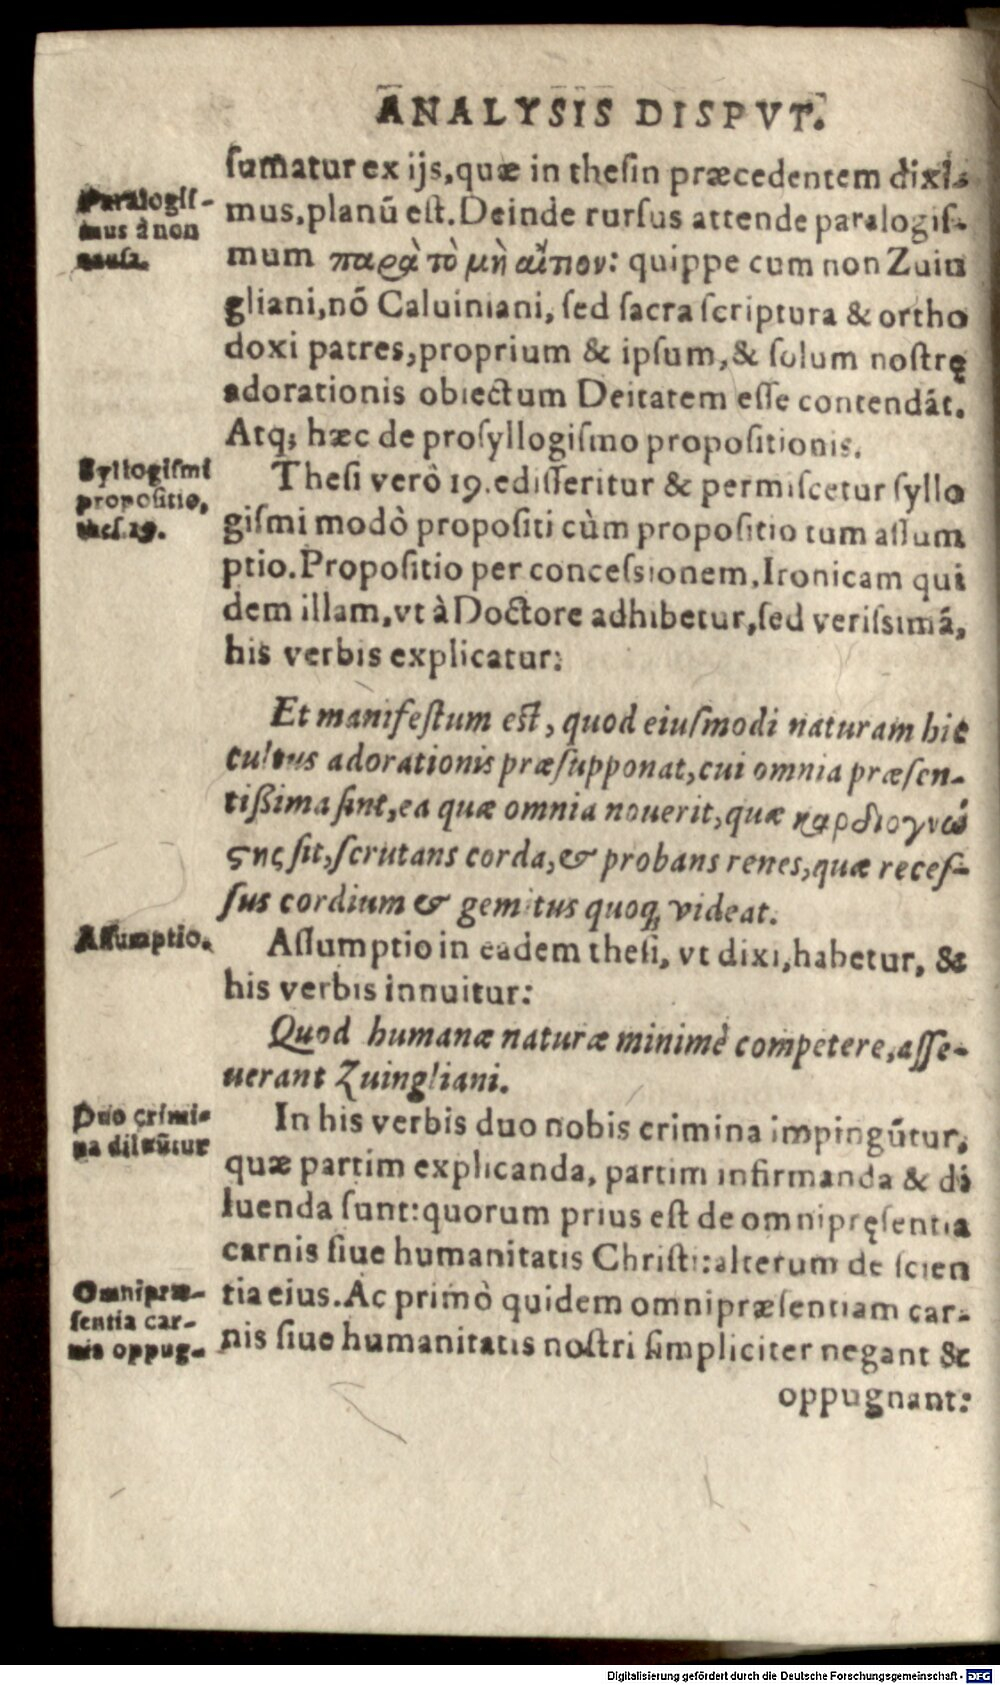 ANALYSIS DISPVT.
sumatur ex ijs, quæ in thesin præcedentem dixi-
Paralogis-
mus à non
causa.
mus, planū est. Deinde rursus attende paralogis-
mum παρὰ τὸ μὴ αἴτιον: quippe cum non Zuin
gliani, nō Caluiniani, sed sacra scriptura & ortho
doxi patres, proprium & ipsum, & solum nostrę
adorationis obiectum Deitatem esse contendāt.
Atq; hæc de prosyllogismo propositionis.
Syllogismi
propositio,
thes. 19.
Thesi verò 19. edisseritur & permiscetur syllo
gismi modò propositi cùm propositio tum assum
ptio. Propositio per concessionem, Ironicam qui
dem illam, vt à Doctore adhibetur, sed verissimā,
his verbis explicatur:
Et manifestum est, quod eiusmodi naturam hic
cultus adorationis præsupponat, cui omnia præsen-
tißima sint, ea quæ omnia nouerit, quæ καρδιογνώ
ςης sit, scrutans corda, & probans renes, quæ reces-
sus cordium & gemitus quoq; videat.
Assumptio.
Assumptio in eadem thesi, vt dixi, habetur, &
his verbis innuitur:
Quod humanæ naturæ minimè competere, asse-
uerant Zuingliani.
Duo crimi-
na diluūtur
In his verbis duo nobis crimina impingūtur,
quæ partim explicanda, partim infirmanda & di
luenda sunt: quorum prius est de omnipręsentia
carnis siue humanitatis Christi: alterum de scien
Omnipræ-
sentia car-
nis oppug-
tia eius. Ac primò quidem omnipræsentiam car-
nis siue humanitatis nostri simpliciter negant &
oppugnant:
Digitalisierung gefördert durch die Deutsche Forschungsgemeinschaft - DFG